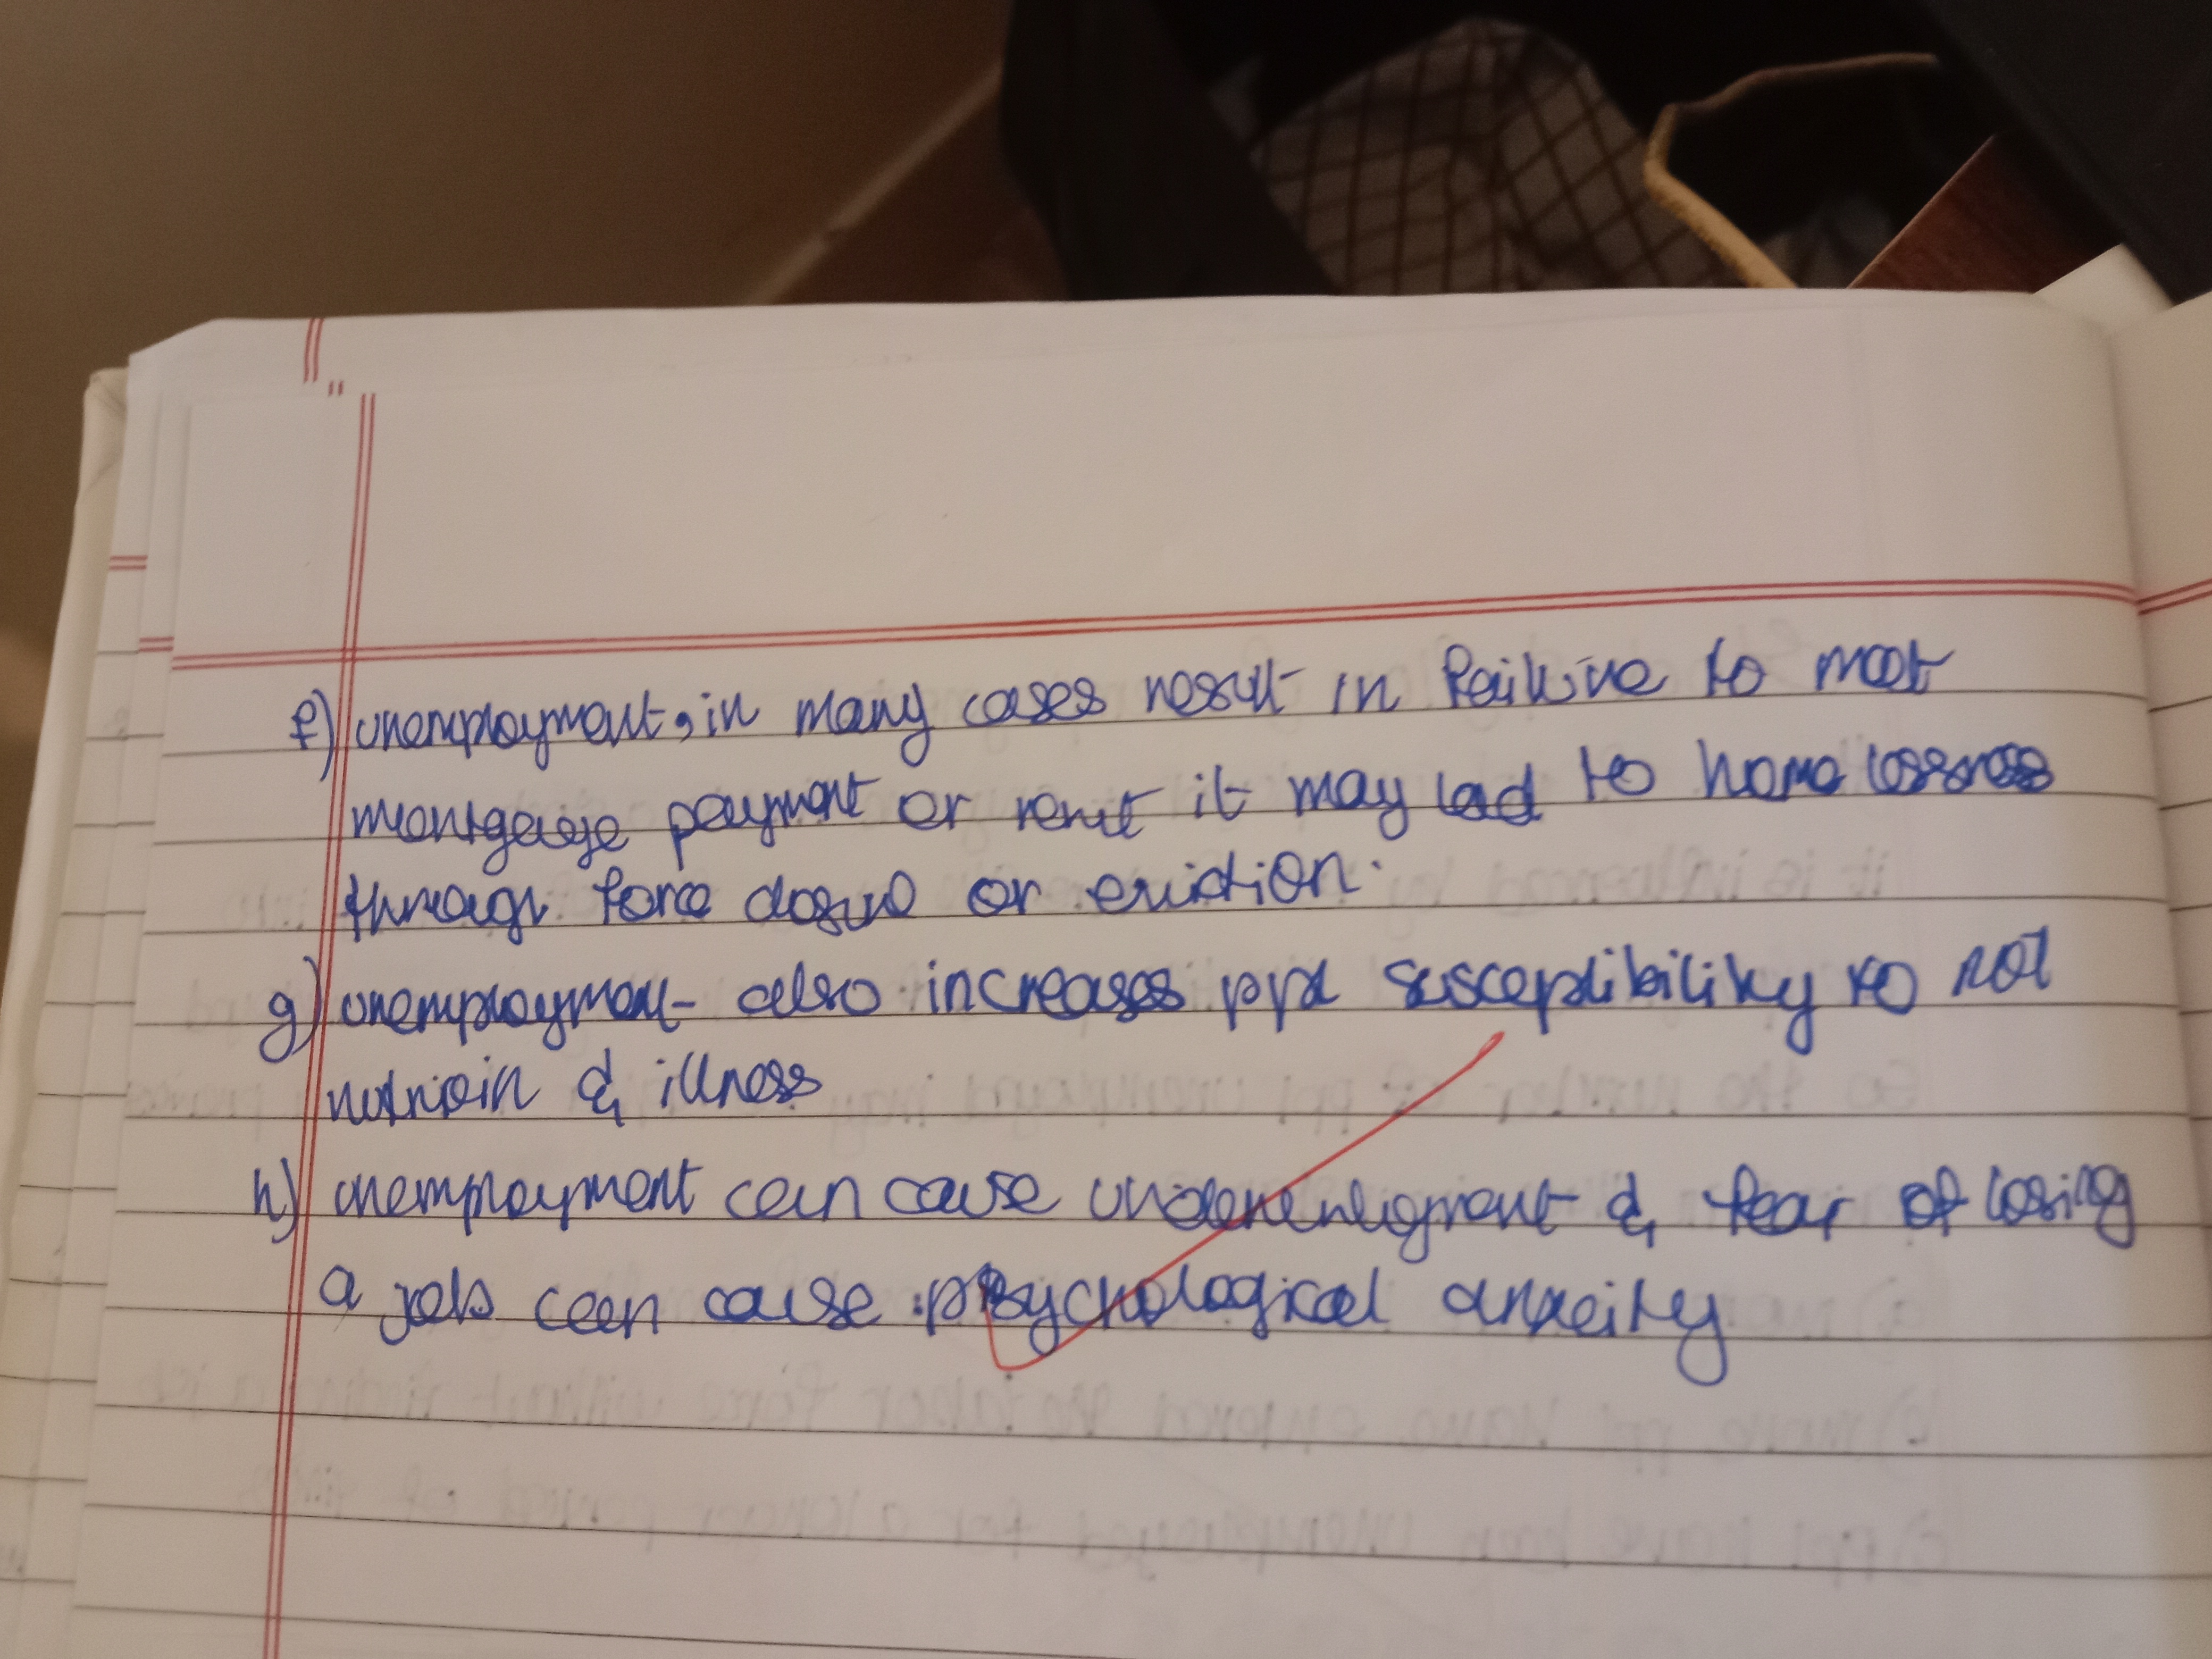 f) unemployment, in many cases result in failure to meet
mortgage payment or rent it may lead to home lessness
through force closure or eviction.
g) unemployment also increases ppl susceptibility to not
nutrioin & illness
h) unemployment can cause & fear of losing
a job can cause psychological anxeity